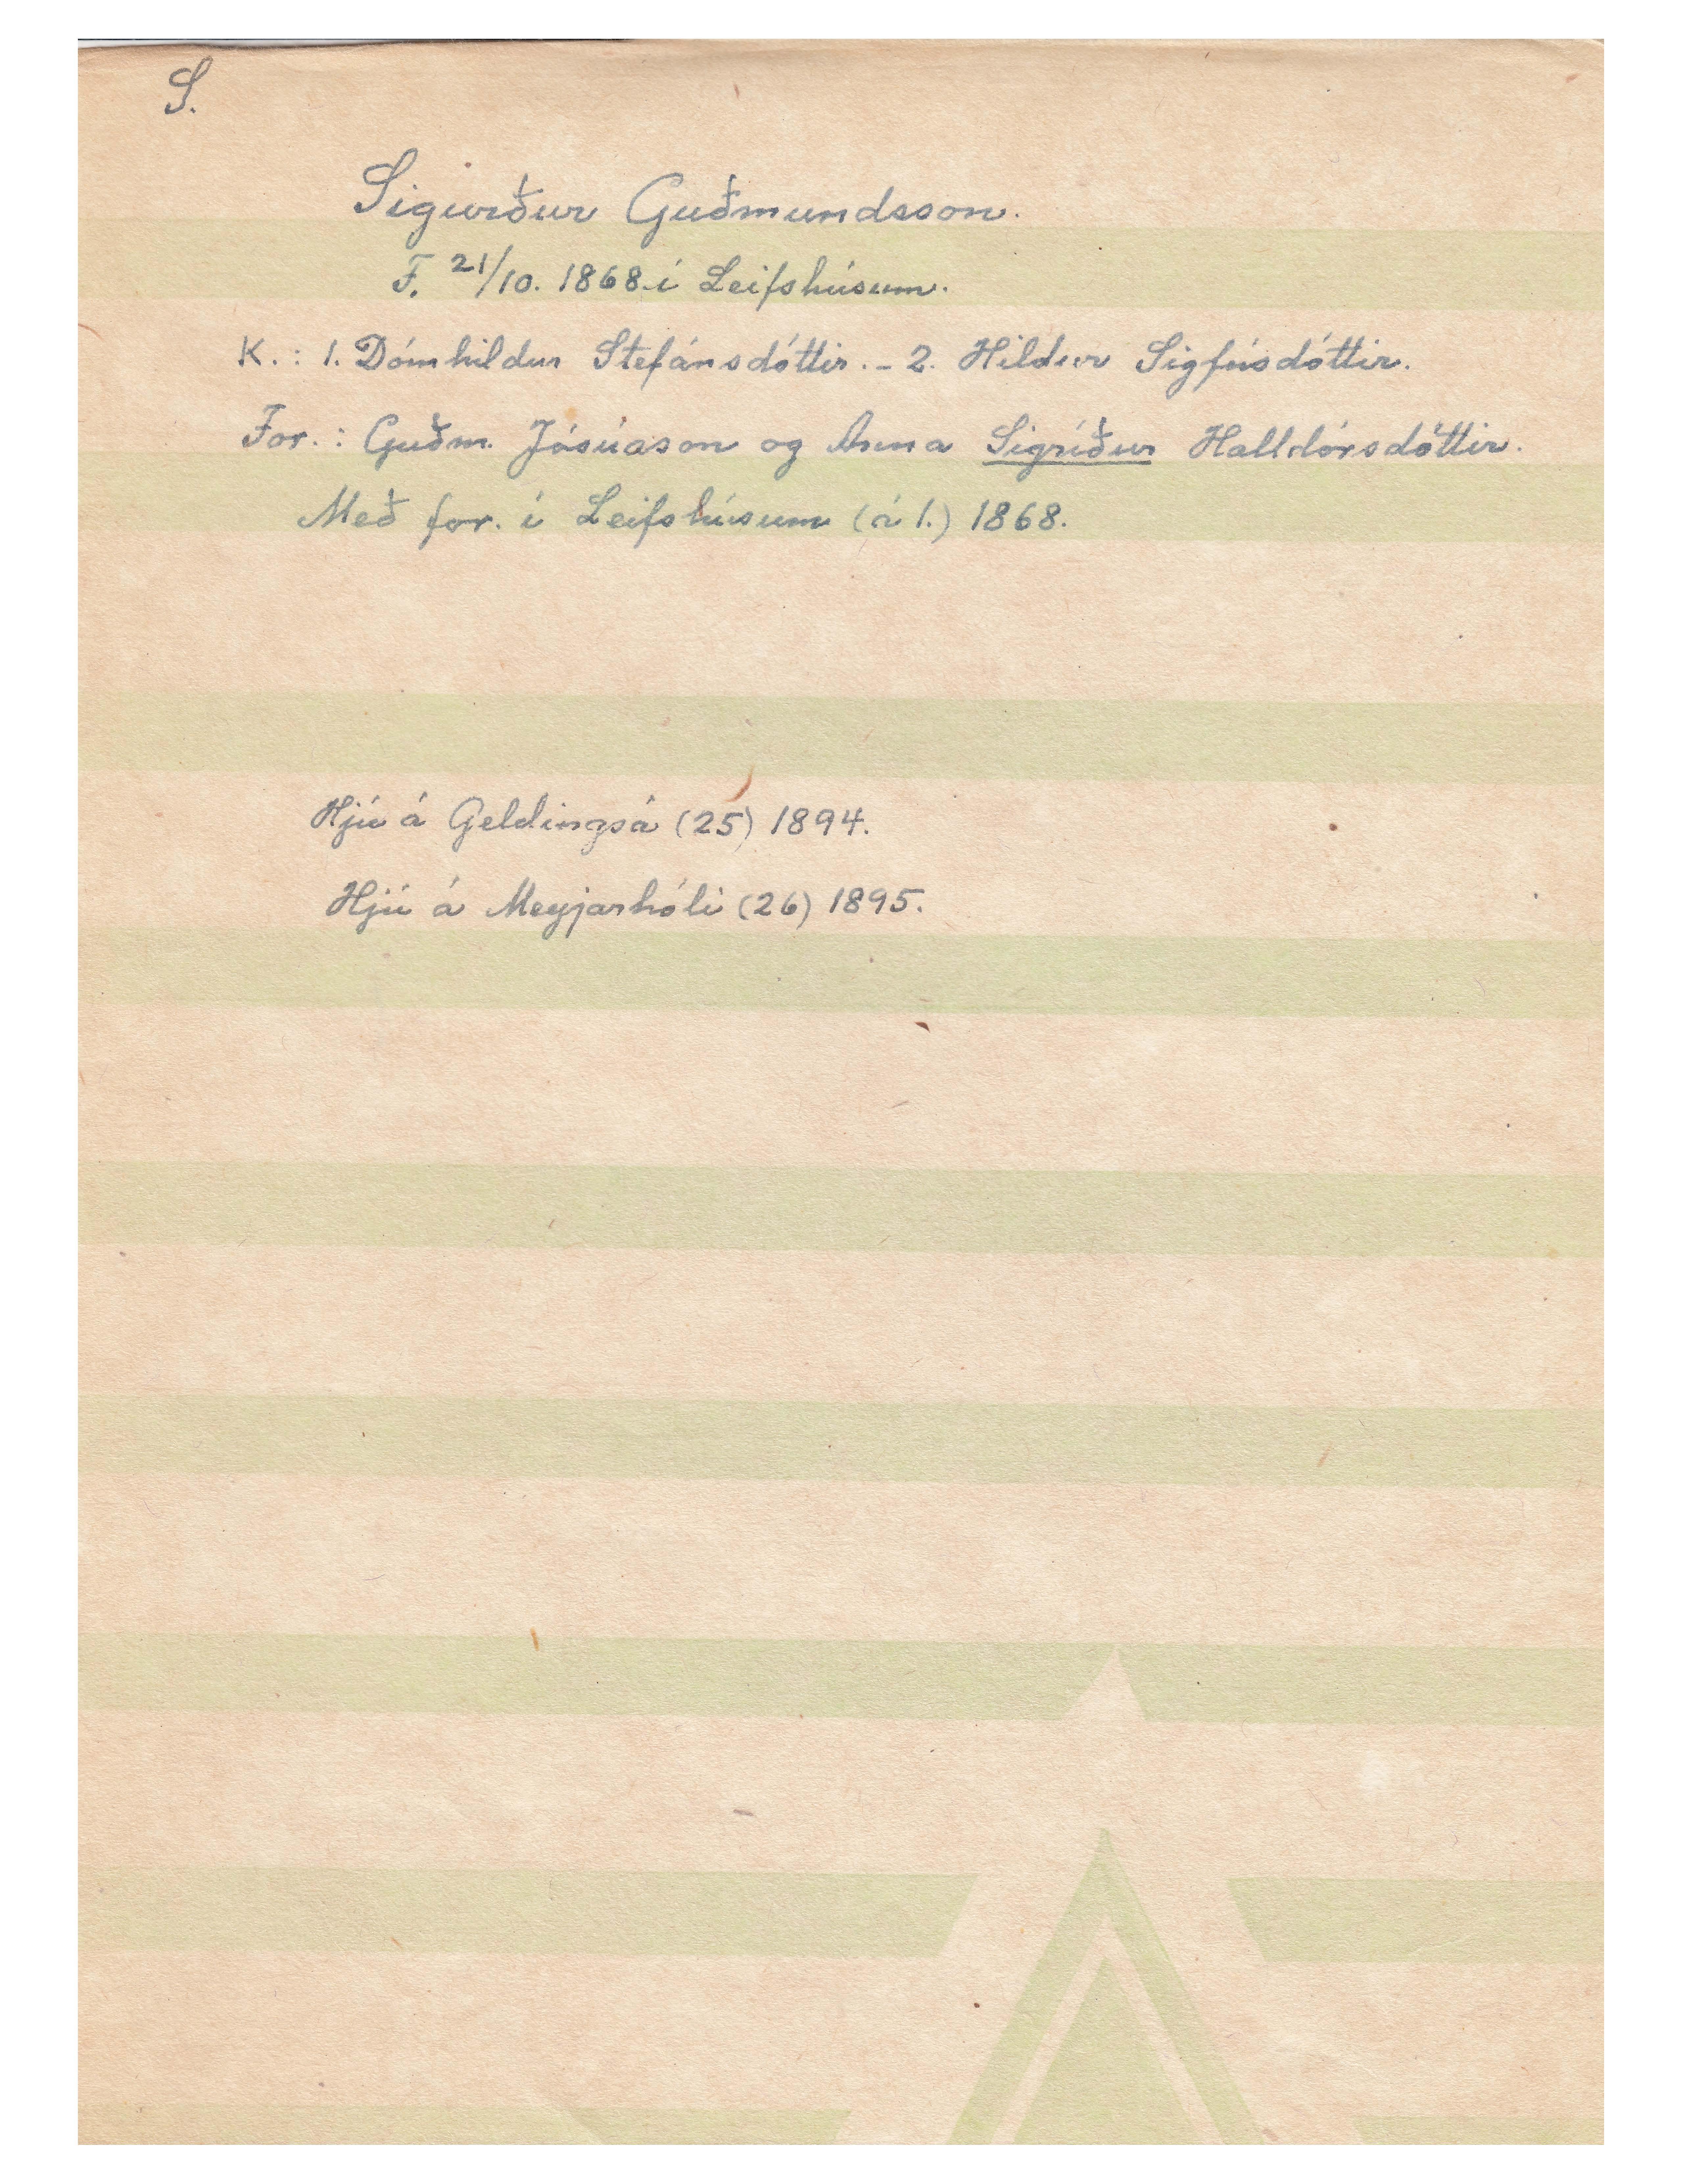 S.
Sigurður Guðmundsson.
F. 21/10. 1868 í Leifshúsum.
K.: 1. Dómhildur Stefánsdóttir. - 2. Hildur Sigfúsdóttir.
For.: Guðm. Jósúason og Anna Sigríður Halldórsdóttir.
Með for. í Leifshúsum (á 1.) 1868.
Hjú á Geldingsá (25) 1894.
Hjú á Meyjarhóli (26) 1895.